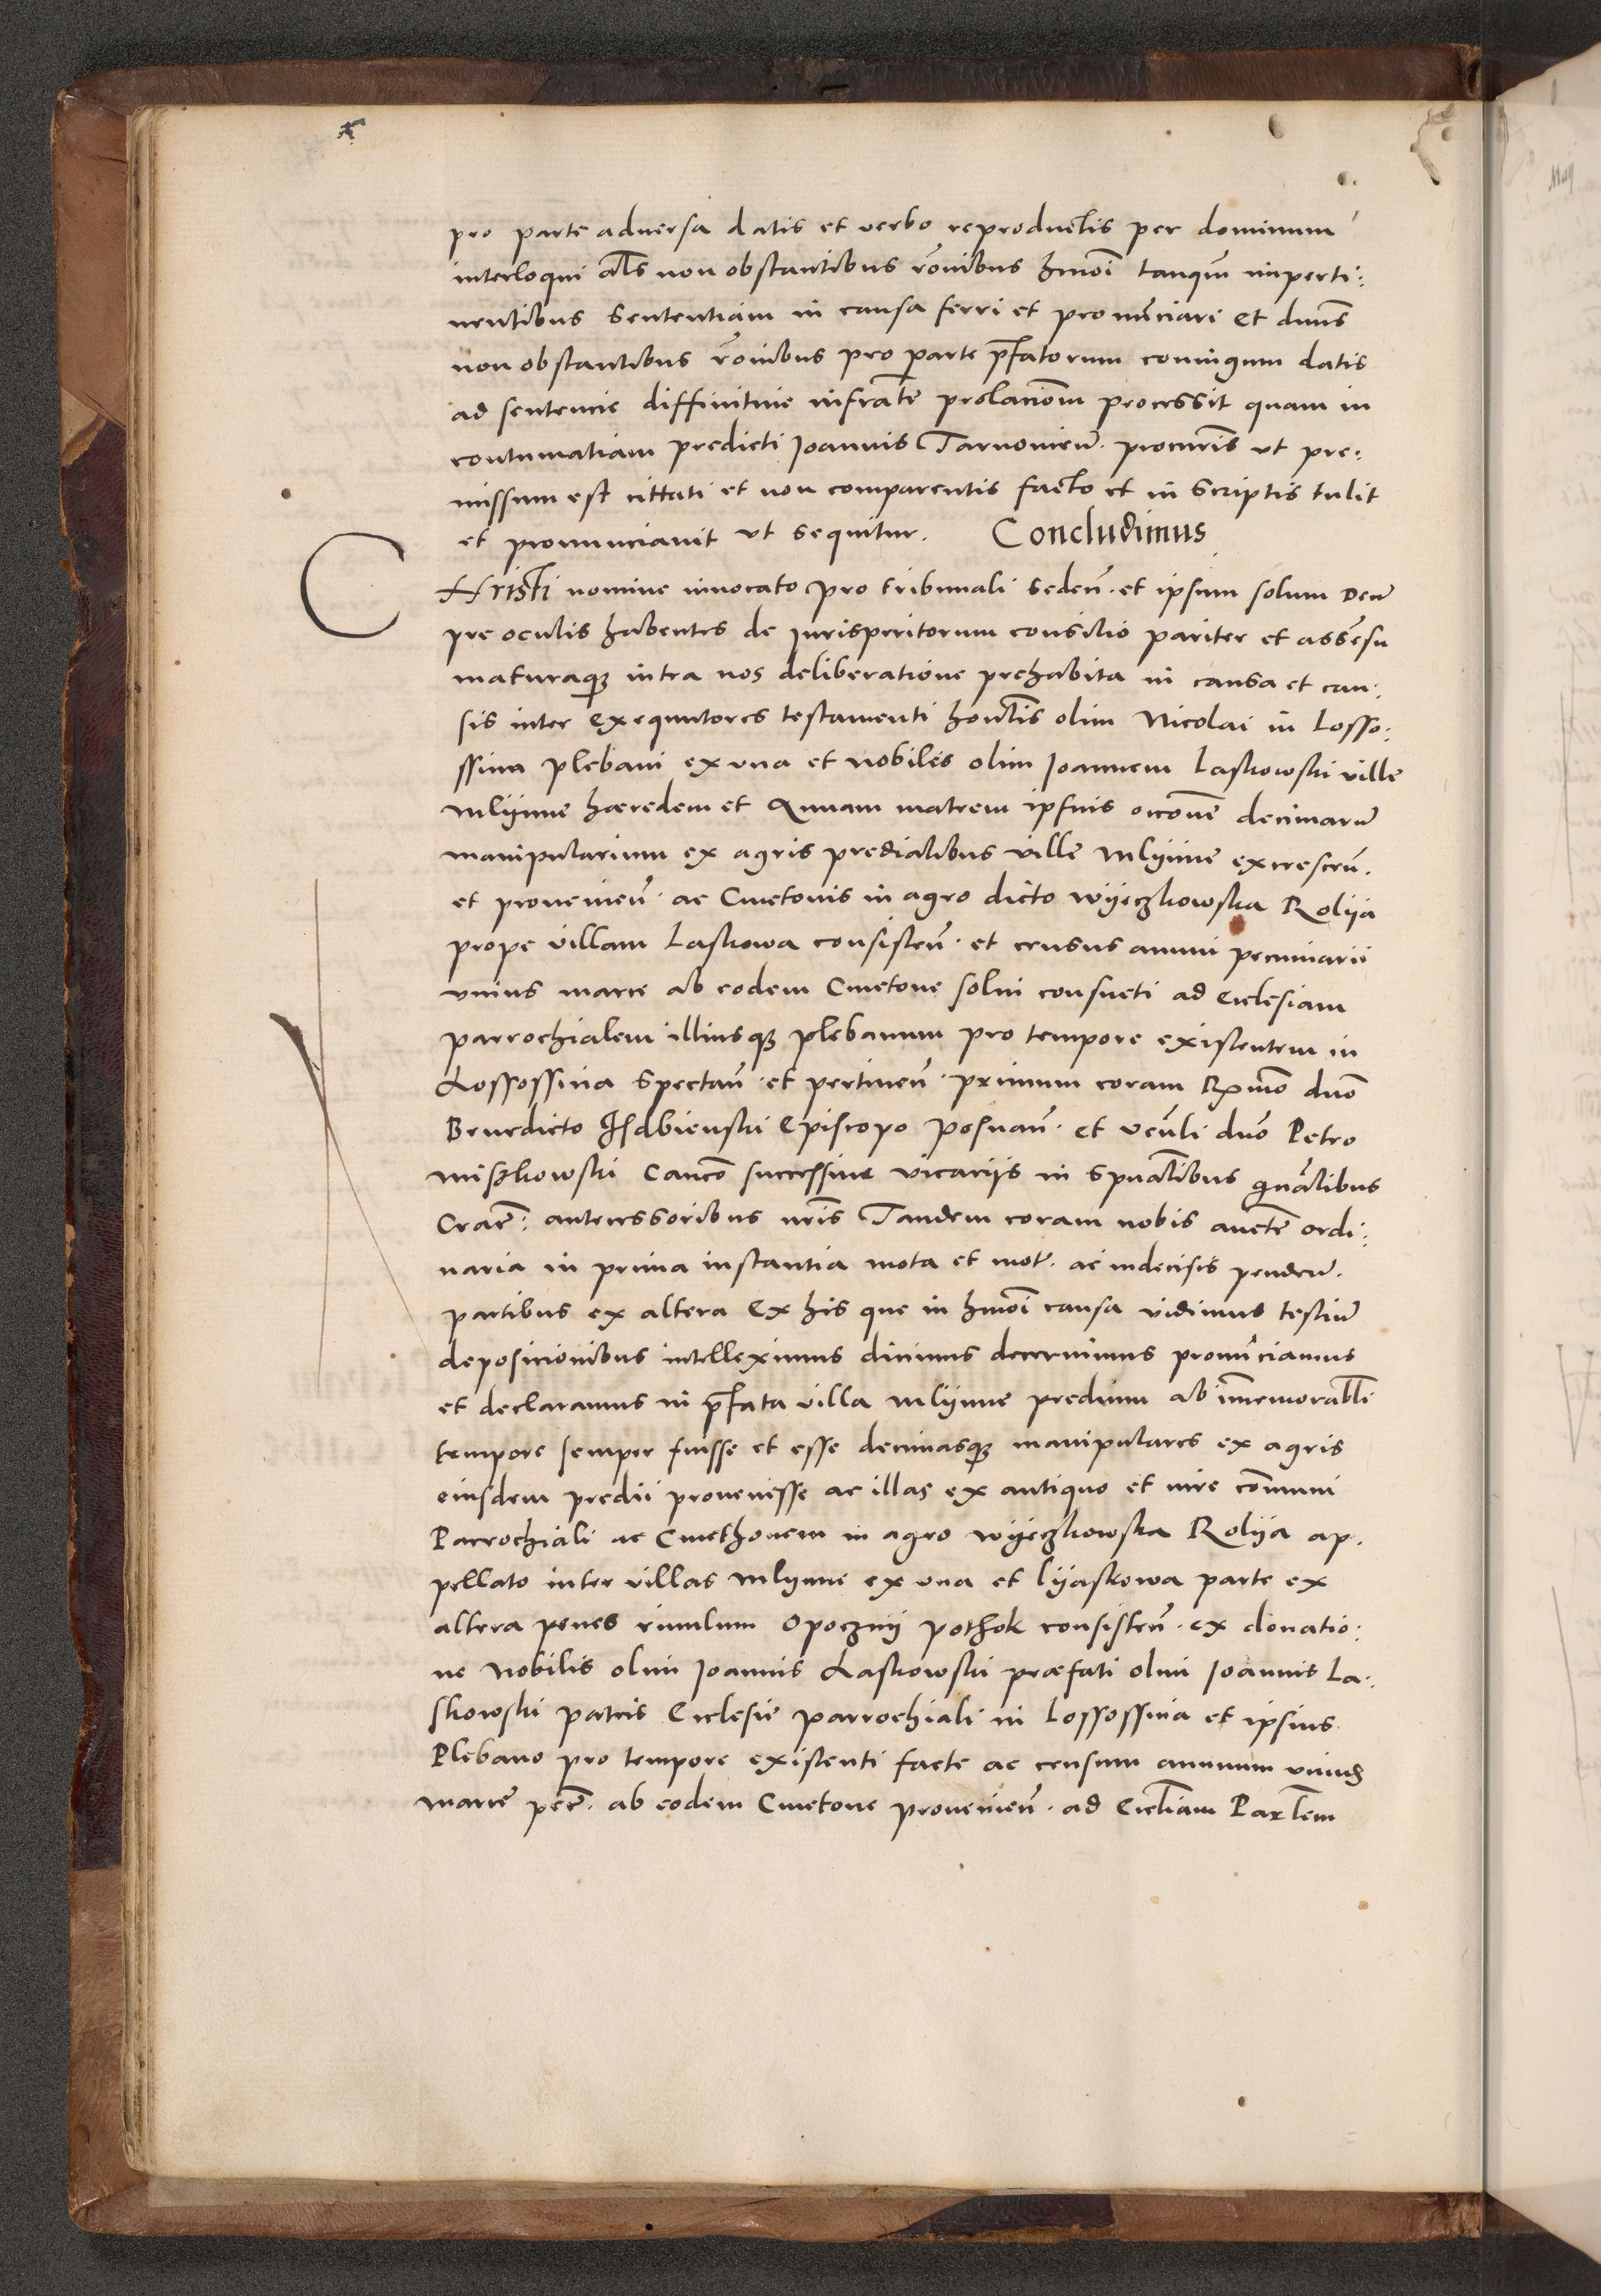 pro parte adversa datis et verbo reproductis per dominum
interloqui als non obstantibus rōnibus hmōi tanqm̄ imperti:
nentibus Sententiam in causa ferri et pronūciari et dnus
non obstantibus rōnibus pro parte pfatorum coniugum datis
ad sentencie diffinitive infrāte prolacōnem processit quam in
contumatiam predicti Joannis Tarnovien̄. procurīs ut pre:
missum est cittati et non comparentis facto et in Scriptis tulit
et pronunciavit ut sequitur. Concludimus
CHristi nomine invocato pro tribunali seden̄. et ipsum solum Deū
pre oculis habentes de jurisperitorum consilio pariter et assēsu
maturaqz intra nos deliberatione prehabita in causa et cau:
sis inter Exequutores testamenti honlis olim Nicolai in Losso:
ssina plebani ex una et nobiles olim Joannem Laskowski ville
Mlÿnne hæredem et Annam matrem ipsius occōne decimarū
manipularium ex agris predialibus ville Mlÿnne excrescen̄.
et provenien̄. ac Cmetonis in agro dicto Wÿeczkowska Rolÿa
prope villam Laskowa consisten̄. et census annui pecuniarii
unius marce ab eodem Cmetone solui consueti ad Ecclesiam
parrochialem illiusqz plebanum pro tempore existentem in
Lossossina spectan̄. et pertinen̄. primum coram Rx̄mo dn̄o
Benedicto Isdbienski Episcopo Posnan̄. et ven̄li dn̄o Petro
Miszkowski Cancō successive vicariis in Spualibus gn̄alibus
Crac̄: antecessoribus nr̄is Tandem coram nobis aucte ordi:
naria in prima instantia mota et mot̄. ac indecisis penden̄.
partibus ex altera Ex his que in hmōi causa vidimus testiū
deposicionibus intelleximus dicimus decernimus pronūciamus
et declaramus in pfata villa Mlÿnne predium ab īmemorabli
tempore semper fuisse et esse decimasqz manipulares ex agris
eiusdem predii provenisse ac illas ex antiquo et iure cōmuni
Parrochiali ac Cmethonem in agro Wÿeczkowska Rolÿa ap:
pellato inter villas Mlynne ex una et Lÿaskowa parte ex
altera penes rivulum Opocznÿ Pothok consisten̄. ex donatio:
ne Nobilis olim Joannis Laskowski præfati olim Joannis La:
skowski patris Ecclesie parrochiali in Lossossina et ipsius
Plebano pro tempore existenti facte ac censum annuum unius
marce pec̄. ab eodem Cmetone provenien̄. ad Eccliam Parlem